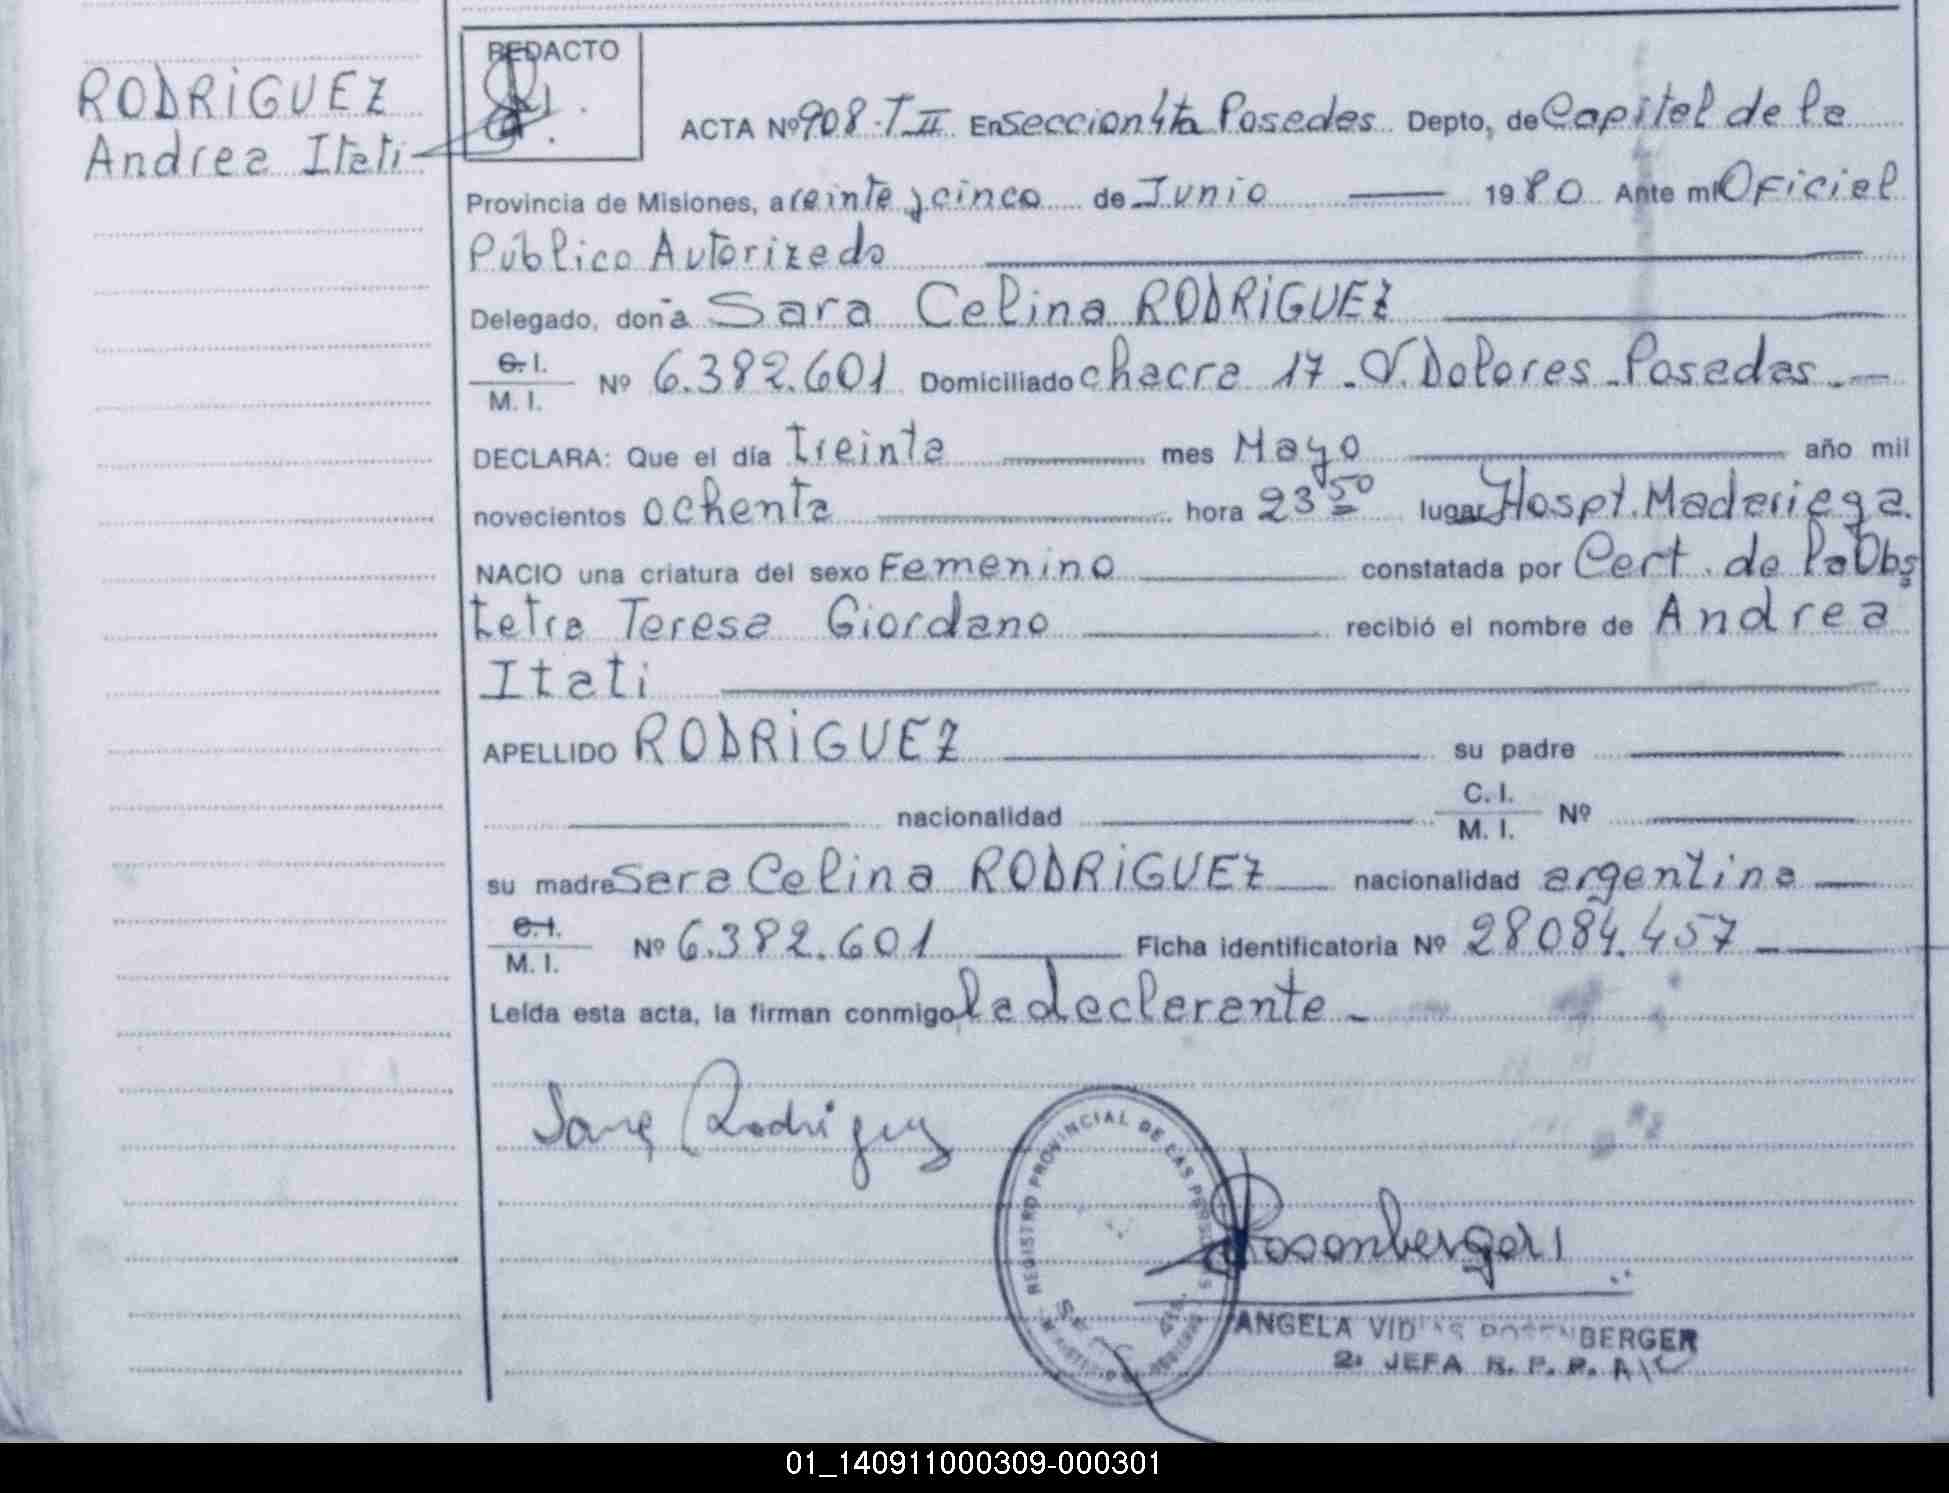 RODRIGUEZ
Andrea Itati
REDACTO
ACTA Nº 908-T II En Seccion 4ta Posadas Depto, de Capital de la
Provincia de Misiones, a veinte y cinco de Junio 1980 Ante mi Oficial
Público Autorizado
Delegado, doña Sara Celina RODRIGUEZ
C. I.
M. I. Nº 6.382.601 Domiciliado chacra 17 - V. Dolores - Posadas -
DECLARA: Que el día treinta mes Mayo año mil
novecientos ochenta hora 23 50 lugar Hospt. Madariaga
NACIO una criatura del sexo Femenino constatada por Cert. de la Obs
tetra Teresa Giordano recibió el nombre de Andrea
Itati
APELLIDO RODRIGUEZ su padre
nacionalidad C. I. Nº
M. I.
su madre Sara Celina RODRIGUEZ nacionalidad argentina
C. I.
M. I. Nº 6.382.601 Ficha identificatoria Nº 28.084.457
Leída esta acta, la firman conmigo la declarante -
Sara Rodriguez
REGISTRO PROVINCIAL DE LAS PERSONAS
Rosenberger
ANGELA ROSENBERGER
2ª JEFA R. P. P. A/C
01_140911000309-000301